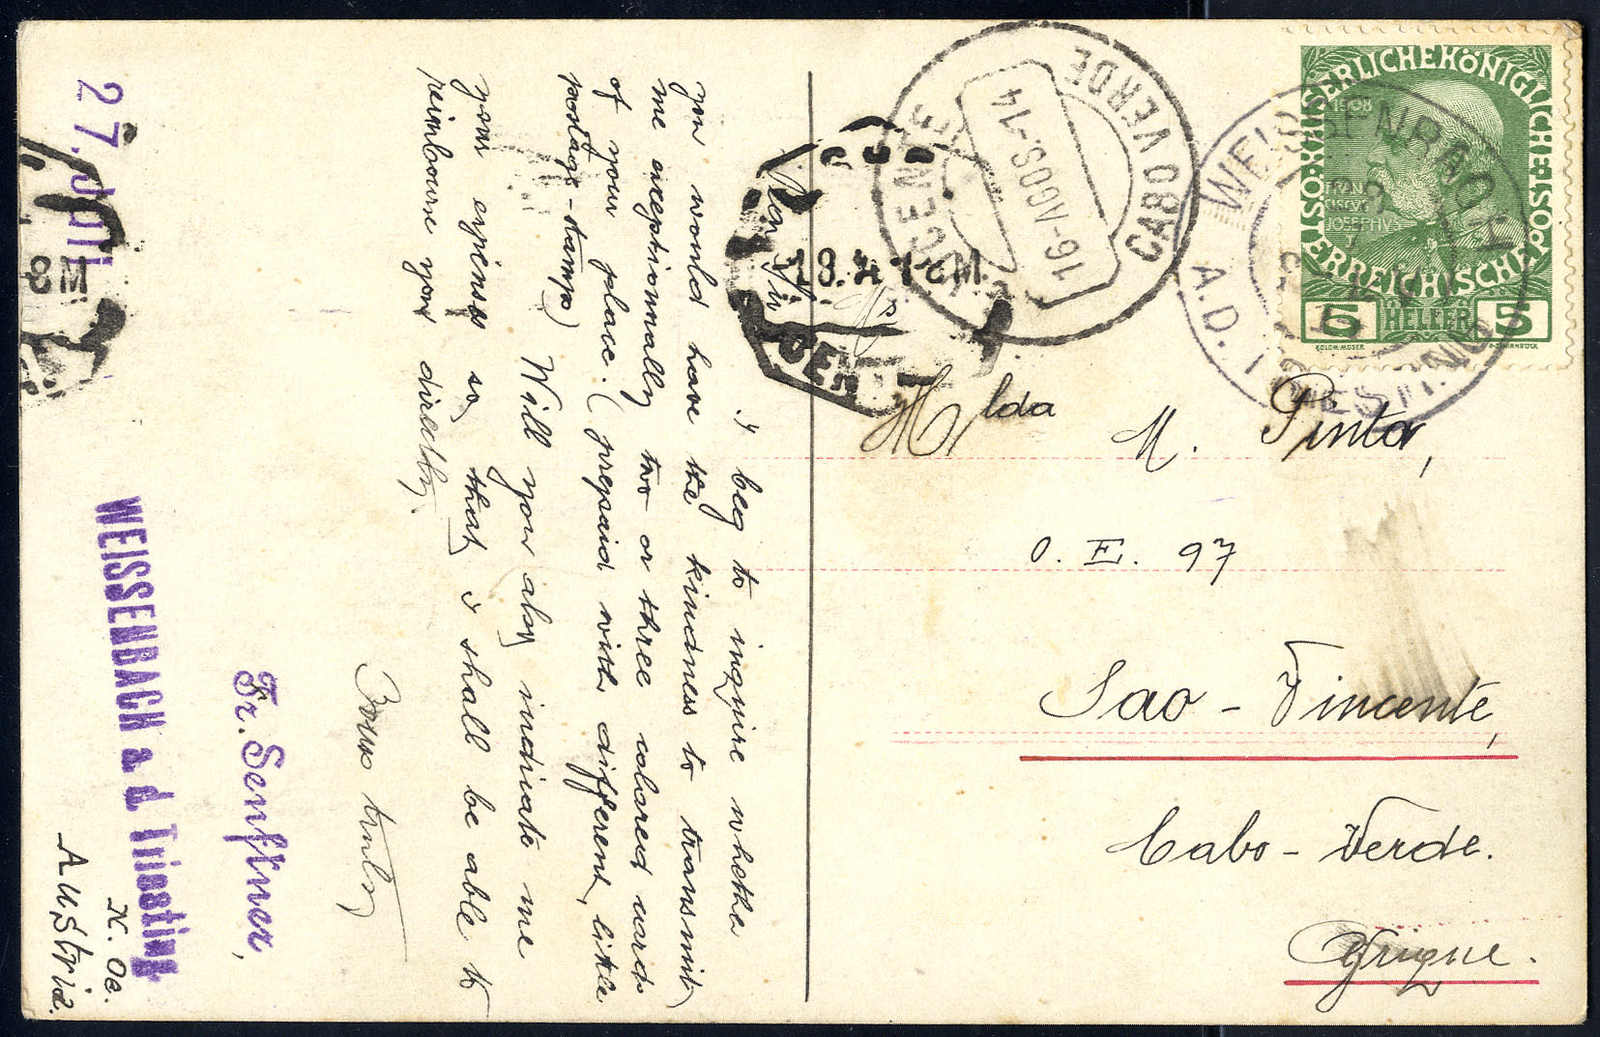 27. Juli
Dear Sir
I beg to inquire whether
you would have the kindness to transmit
me exceptionnally two or three colared cards
of your place. (prepaid with different little
postage-stamps) Will your aloy indicate me
your expenses so that I shall be able to
reimbourse your directly.
Yours truly
Fr. Senftner,
WEISSENBACH a. d. Triesting
N. Oe.
Austria.
KAISERLICHEKÖNIGLICHE
ÖSTERREICHISCHE POST
1908
FRAN
CISCVS
JOSEPHVS
5 HELLER 5
KOLOM.MOSER
WEISSENBACH
A.D. TRIESTING
CABO VERDE
16-AGOS.-14
S. VICENTE
18.4 1-8M
8M
Ms
Hlda M. Pinto,
O. E. 97
Sao-Vincente,
Cabo-Verde.
Afrique.